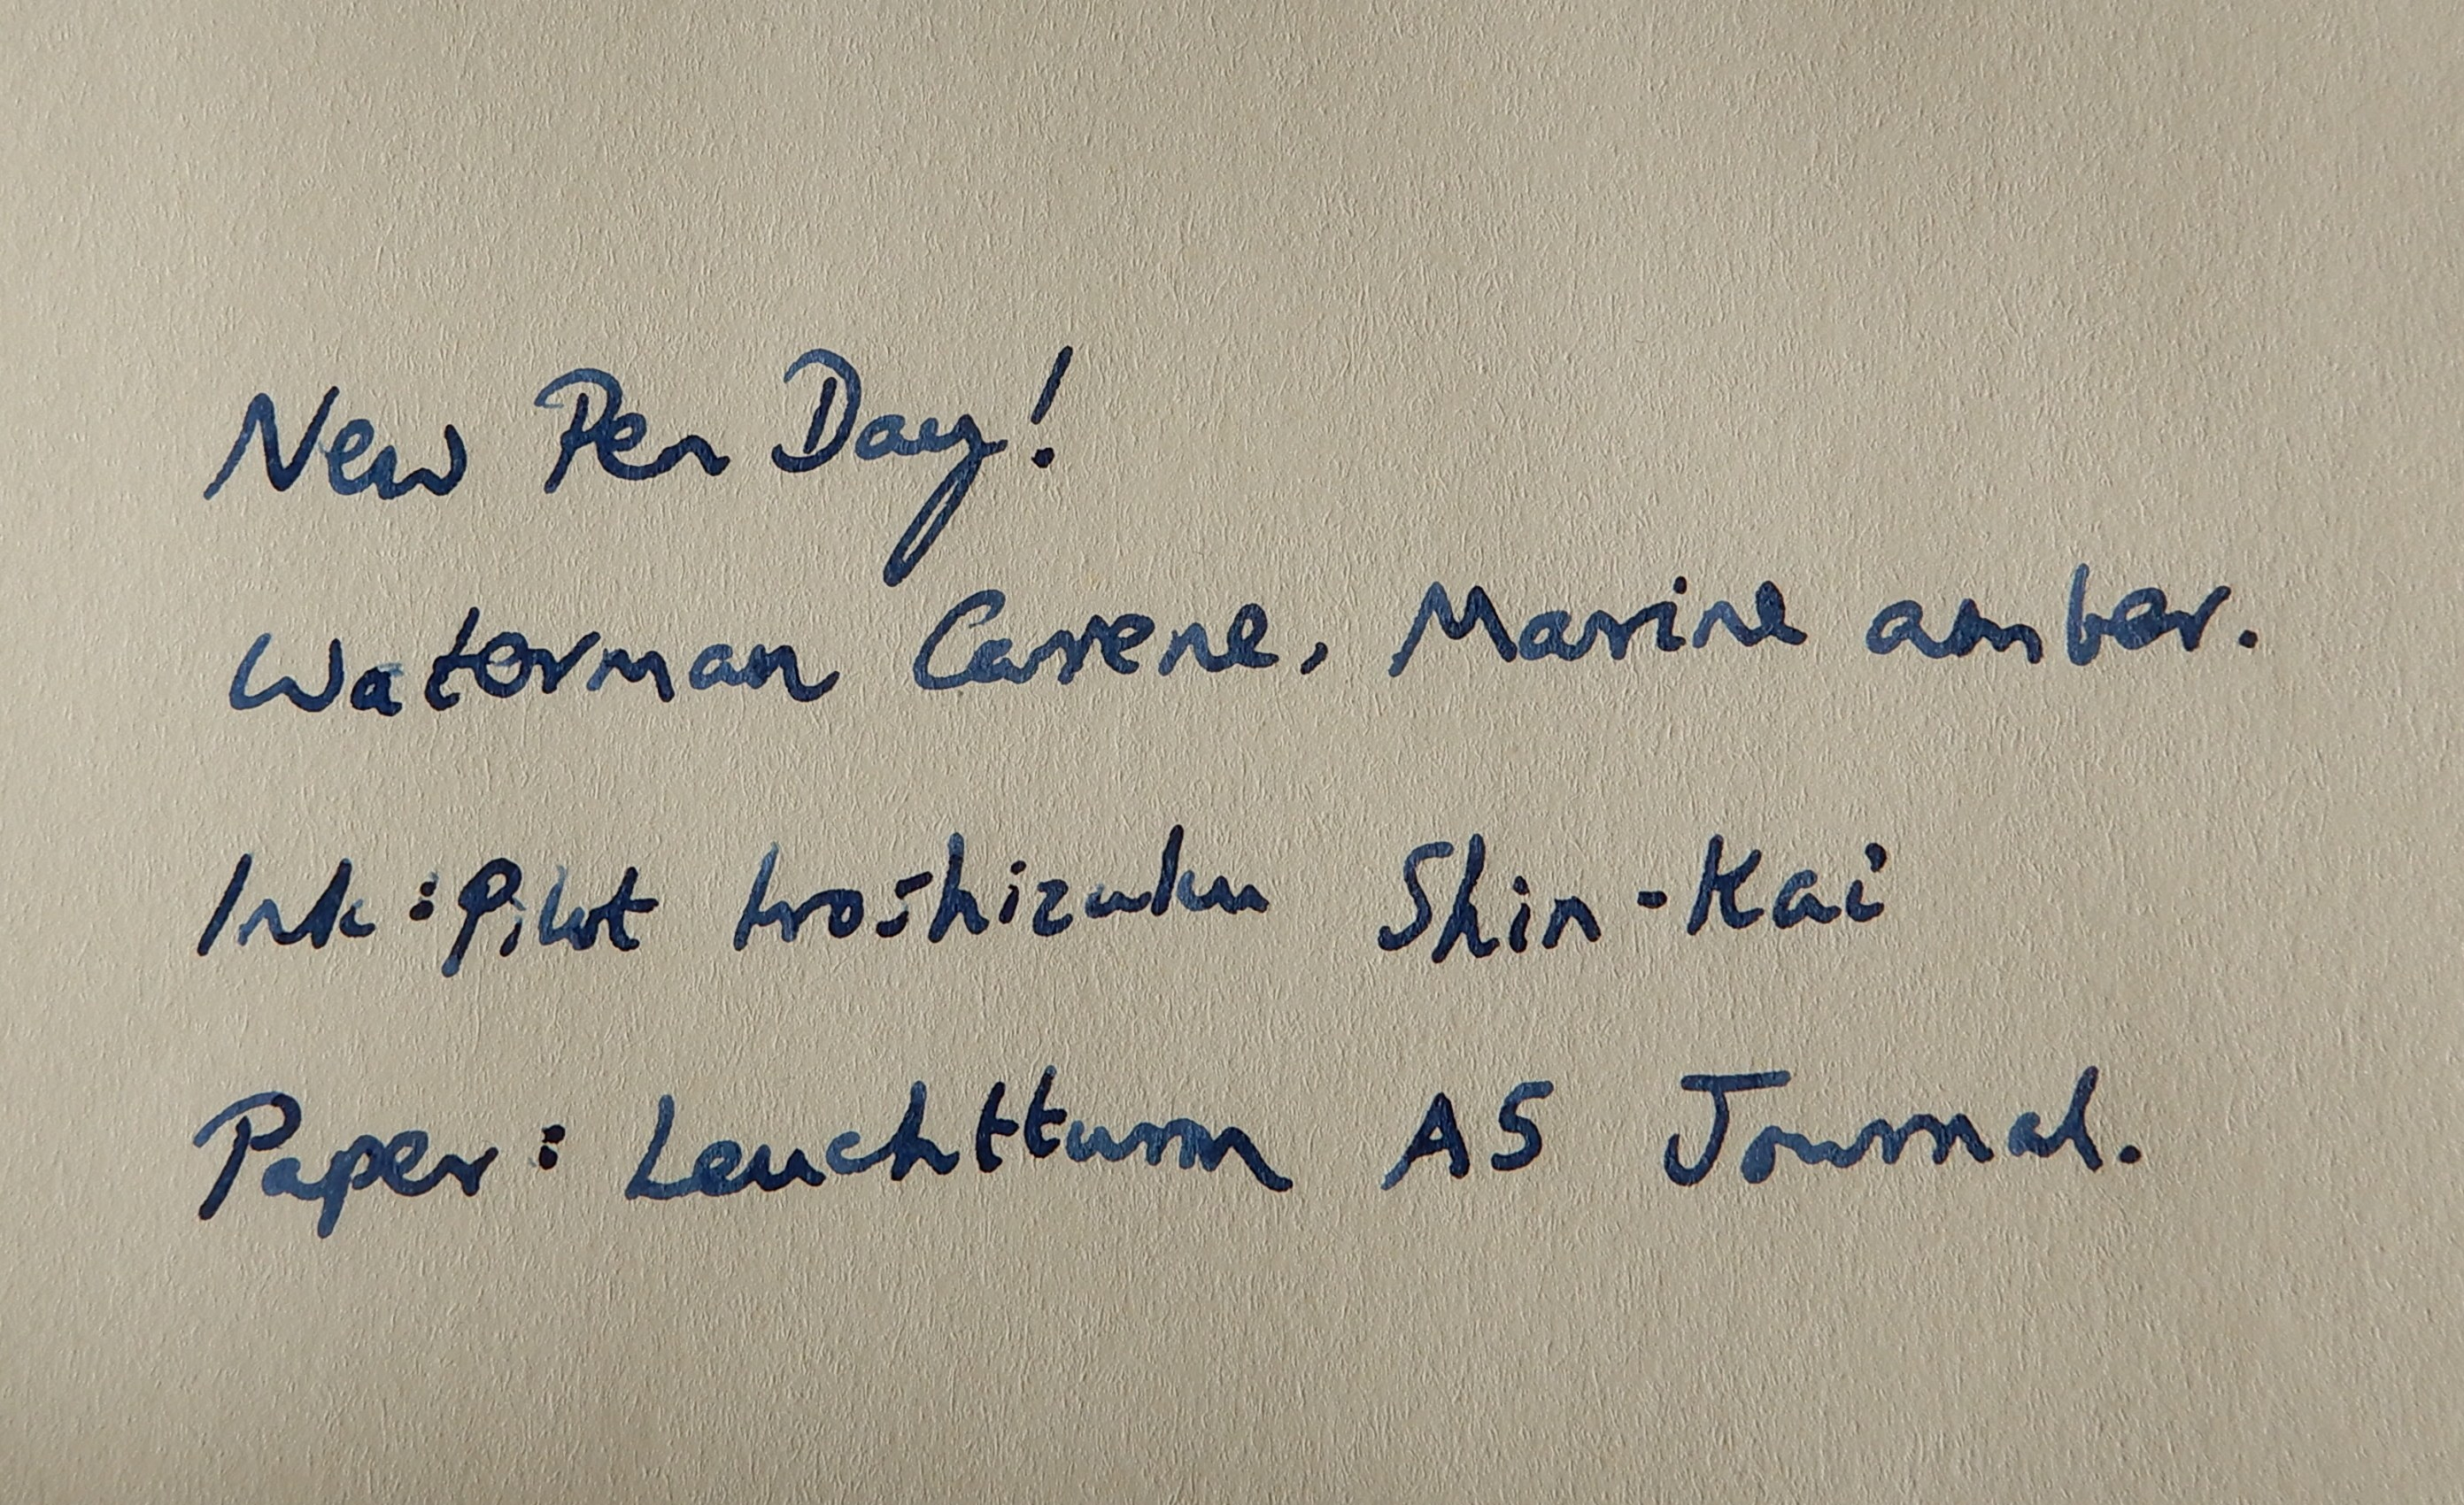 New Pen Day!
Waterman Carene, Marine amber.
Ink: Pilot Iroshizuku Shin-Kai
Paper: Leuchtturm A5 Journal.